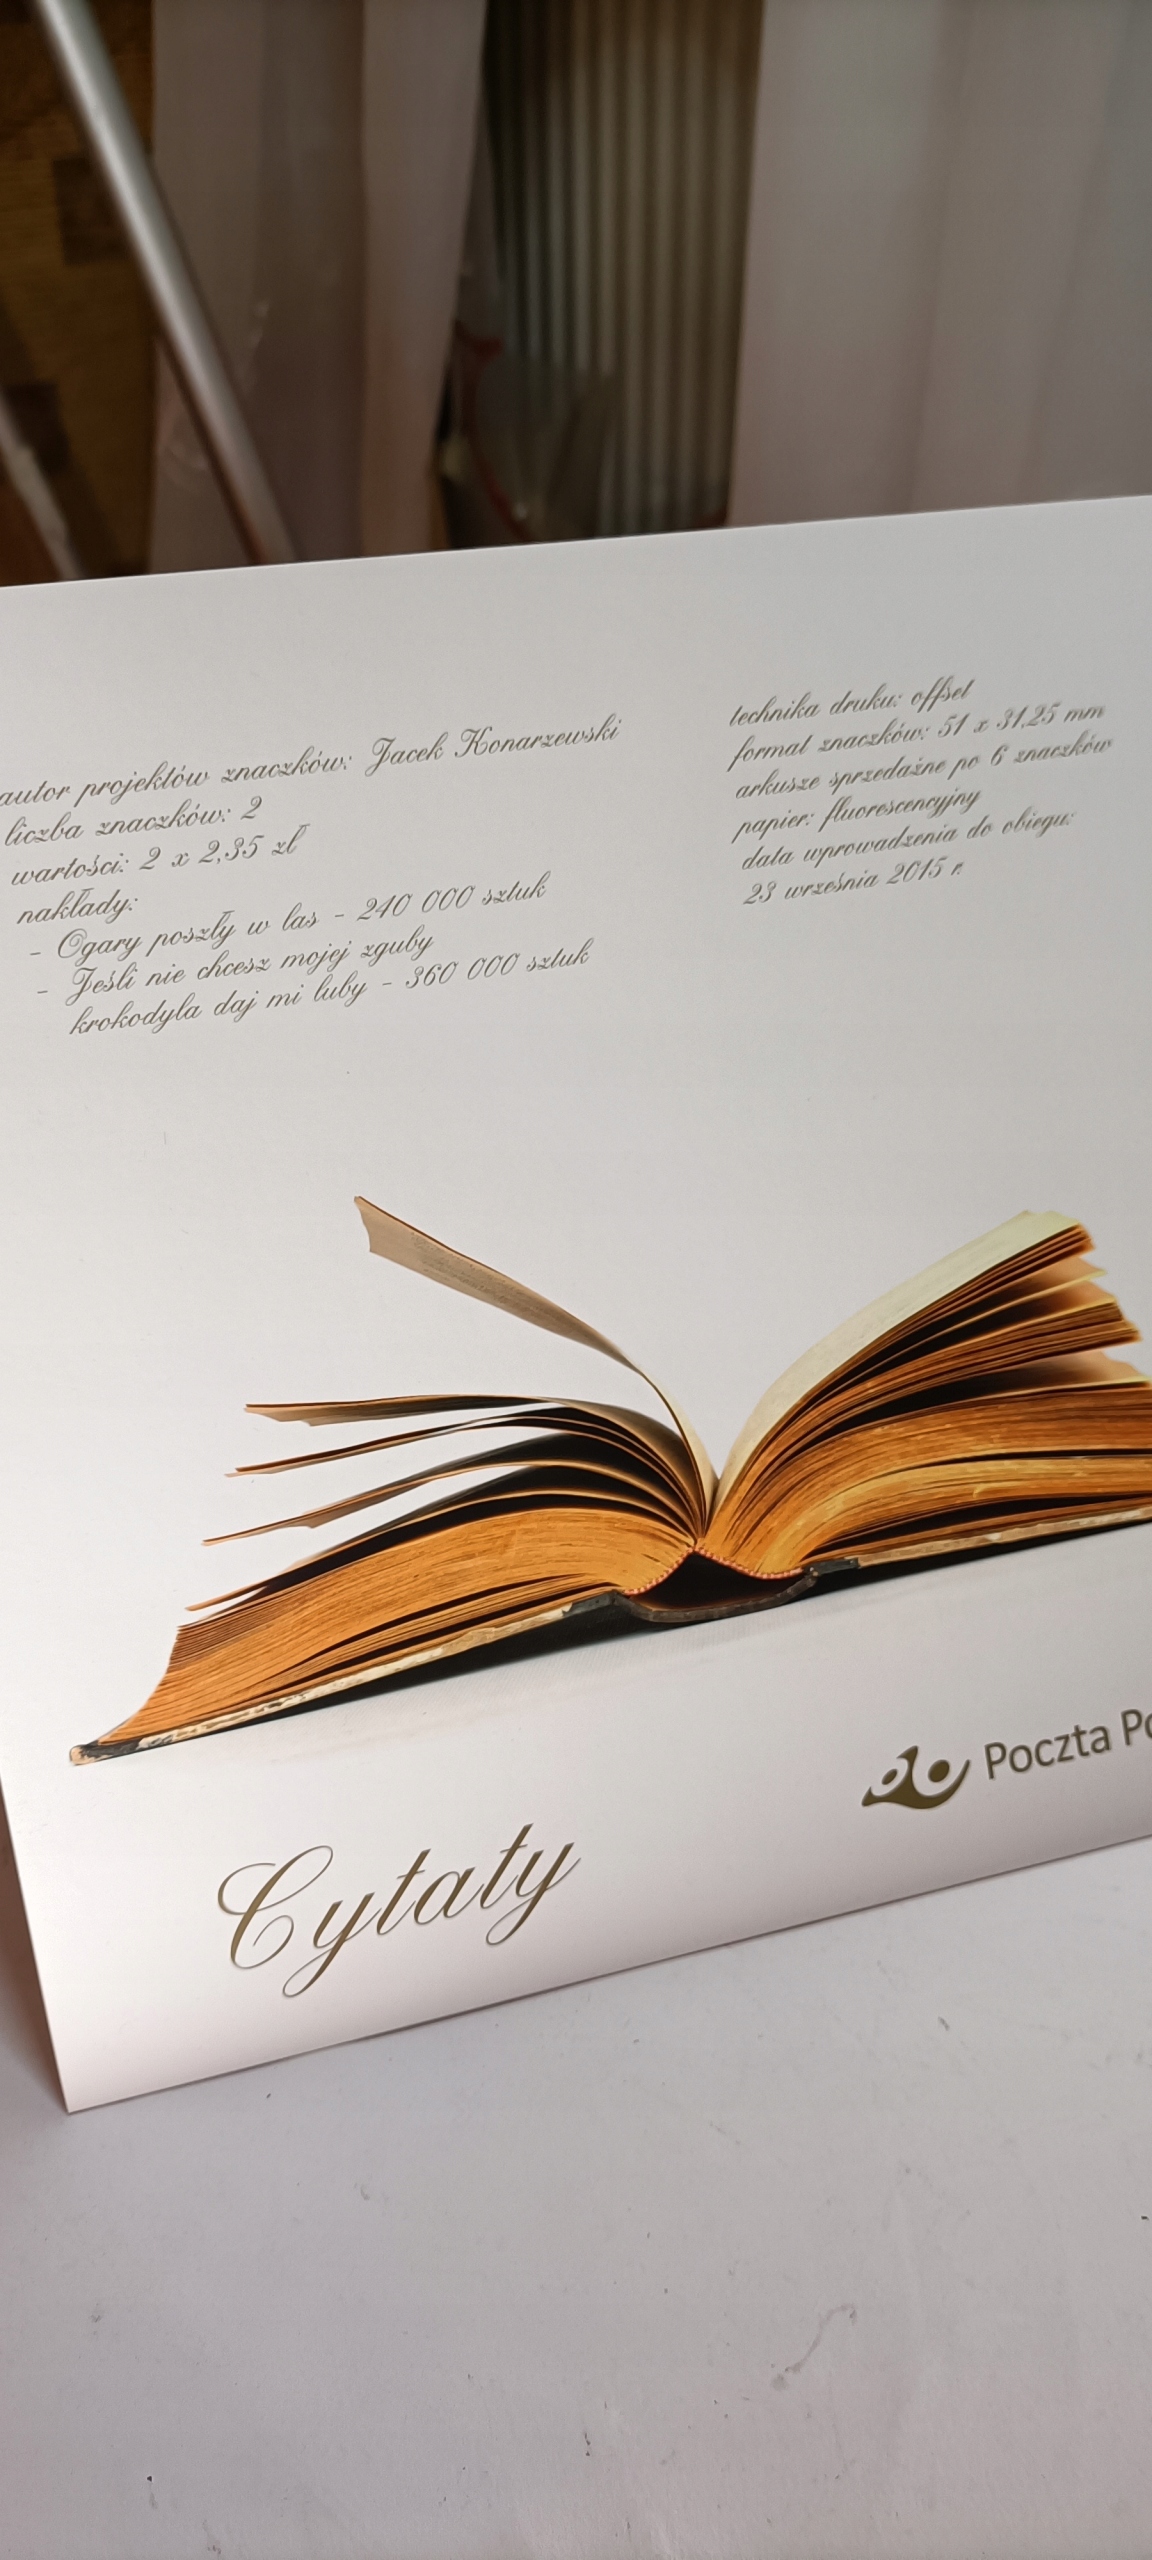 autor projektów znaczków: Jacek Konarzewski
liczba znaczków: 2
wartości: 2 x 2,35 zł
nakłady:
- Ogary poszły w las - 240 000 sztuk
- Jeśli nie chcesz mojej zguby
krokodyla daj mi luby - 360 000 sztuk
technika druku: offset
format znaczków: 51 x 31,25 mm
arkusze sprzedażne po 6 znaczków
papier: fluorescencyjny
data wprowadzenia do obiegu:
23 września 2015 r.
Poczta Po
Cytaty